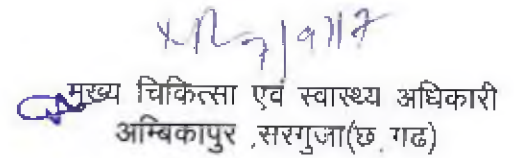 मुख्य चिकित्सा एवं स्वास्थ्य अधिकारी
अम्बिकापुर ,सरगुजा(छ.गढ)